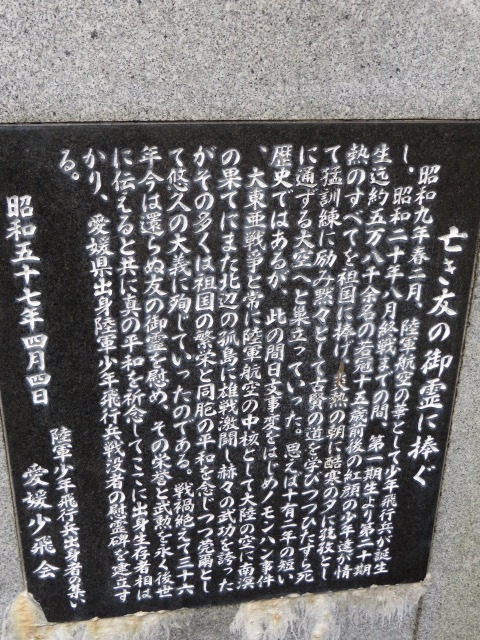 亡き友の御霊に捧ぐ
昭和九年春二月、陸軍航空の華として少年飛行兵が誕生
し、昭和二十年八月終戦までの間、第一期生より第二十期
生迄約五万八千余名の若冠十五歳前後の紅顔の少年達が情
熱のすべてを祖国に捧げ、炎熱の朝に酷寒の夕に孜孜とし
て猛訓練に励み黙々として古賢の道を学びつつひたすら死
に通ずる大空へと巣立っていった。思えば十有二年の短い
歴史ではあるが、此の間日支事変をはじめノモンハン事件
、大東亜戦争と常に陸軍航空の中核として大陸の空に南溟
の果てにまた北辺の孤島に雄戦激闘し赫々の武功を誇った
がその多くは祖国の繁栄と同胞の平和を念じつつ莞爾とし
て悠久の大義に殉じていったのである。戦禍絶えて三十六
年今は還らぬ友の御霊を慰め、その栄誉と武勲を永く後世
に伝えると共に真の平和を祈念してここに出身生存者相は
かり、愛媛県出身陸軍少年飛行兵戦没者の慰霊碑を建立す
る。
昭和五十七年四月四日
陸軍少年飛行兵出身者の集い
愛媛少飛会